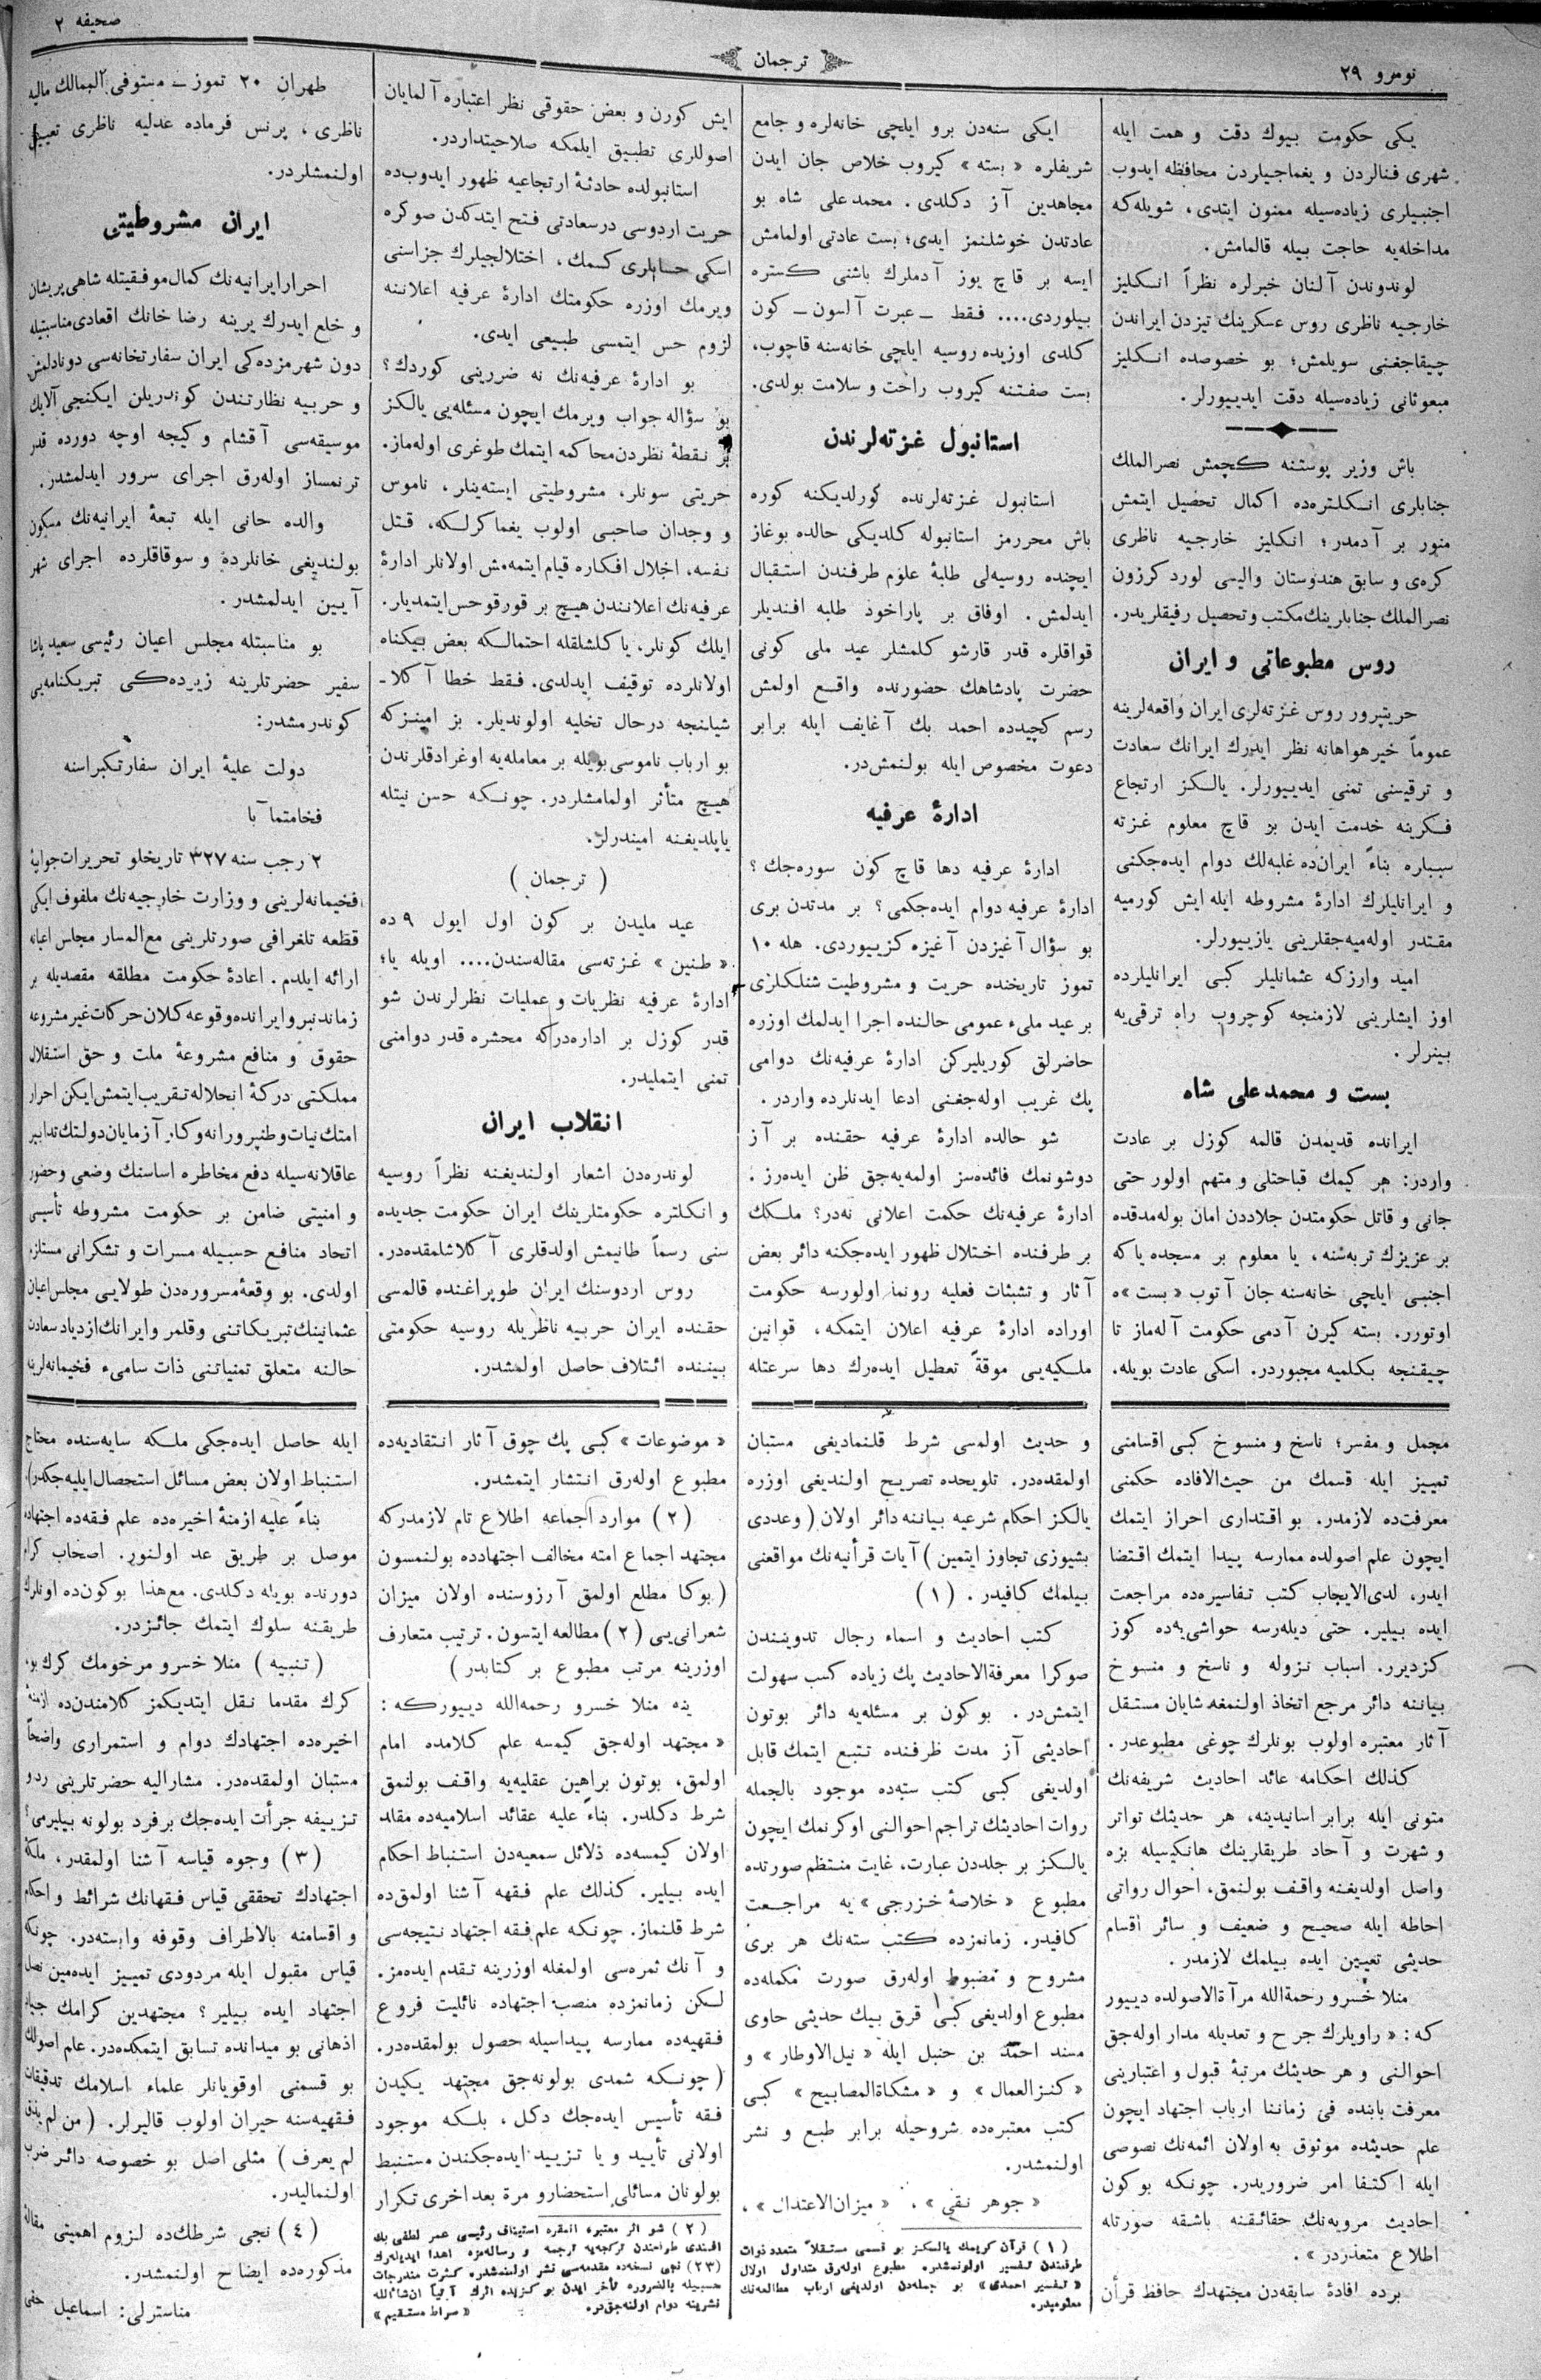 نومرو ٢٩
ترجمان
صحيفه ٢
يكى حكومت بيوك دقت و همت ايله
شهرى فنالردن و يغماجيلردن محافظه ايدوب
اجنبيلرى زياده‌سيله ممنون ايتدى، شويله‌كه
مداخله‌يه حاجت بيله قالمامش.
لوندوندن آلنان خبرلره نظراً انكليز
خارجيه ناظرى روس عسكرينك تيزدن ايراندن
چيقاجغنى سويلمش؛ بو خصوصده انكليز
مبعوثانى زياده‌سيله دقت ايدييورلر.
باش وزير پوستنه كچمش نصرالملك
جنابلرى انكلتره‌ده اكمال تحصيل ايتمش
منور بر آدمدر؛ انكليز خارجيه ناظرى
كره‌ى و سابق هندوستان واليسى لورد كرزون
نصرالملك جنابلرينك مكتب و تحصيل رفيقلريدر.
روس مطبوعاتى و ايران
حريتپرور روس غزته‌لرى ايران واقعه‌لرينه
عموماً خيرهواهانه نظر ايدرك ايرانك سعادت
و ترقيسنى تمنى ايدييورلر. يالكز ارتجاع
فكرينه خدمت ايدن بر قاچ معلوم غزته
سبباره بناءً ايران‌ده غلبه‌لك دوام ايده‌جكنى
و ايرانليلرك ادارهٔ مشروطه ايله ايش كورميه
مقتدر اوله‌ميه‌جقلرينى يازييورلر.
اميد واركه عثمانليلر كبى ايرانليلرده
اوز ايشلرينى لازمنجه كوچروب راه ترقى‌يه
بينرلر.
بست و محمد على شاه
ايرانده قديمدن قالمه كوزل بر عادت
واردر: هر كيمك قباحتلى و متهم اولور حتى
جانى و قاتل حكومتدن جلاددن امان بوله‌مدقده
بر عزيزك تربه‌شنه، يا معلوم بر مسجده ياكه
اجنبى ايلچى خانه‌سنه جان آتوب «بست»ه
اوتورر. بسته كيرن آدمى حكومت آله‌ماز تا
چيقنجه بكلميه مجبوردر. اسكى عادت بويله.
ايكى سنه‌دن برو ايلچى خانه‌لره و جامع
شريفلره «بسته» كيروب خلاص جان ايدن
مجاهدين آز دكلدى. محمد على شاه بو
عادتدن خوشلنمز ايدى؛ بست عادتى اولمامش
ايسه بر قاچ يوز آدملرك باشنى كستره
بيلوردى.... فقط ـ عبرت آلسون ـ كون
كلدى اوزيده روسيه ايلچى خانه‌سنه قاچوب،
بست صفتنه كيروب راحت و سلامت بولدى.
استانبول غزته‌لرندن
استانبول غزته‌لرنده كورلديكنه كوره
باش محررمز استانبوله كلديكى حالده بوغاز
ايچنده روسيه‌لى طلبهٔ علوم طرفندن استقبال
ايدلمش. اوفاق بر پاراخود طلبه افنديلر
قواقلره قدر قارشو كلمشلر عيد ملى كونى
حضرت پادشاهك حضورنده واقع اولمش
رسم كچيدده احمد بك آغايف ايله برابر
دعوت مخصوص ايله بولنمش‌در.
ادارهٔ عرفيه
ادارهٔ عرفيه دها قاچ كون سوره‌جك؟
ادارهٔ عرفيه دوام ايده‌جكمى؟ بر مدتدن برى
بو سؤال آغيزدن آغيزه كزييوردى. هله ١٠
تموز تاريخنده حريت و مشروطيت شنلكلرى
بر عيد ملىء عمومى حالنده اجرا ايدلمك اوزره
حاضرلق كوريليركن ادارهٔ عرفيه‌نك دوامى
پك غريب اوله‌جغنى ادعا ايدنلرده واردر.
شو حالده ادارهٔ عرفيه حقنده بر آز
دوشونمك فائده‌سز اولمه‌يه‌جق ظن ايده‌رز.
ادارهٔ عرفيه‌نك حكمت اعلانى نه‌در؟ ملكك
بر طرفنده اختلال ظهور ايده‌جكنه دائر بعض
آثار و تشبثات فعليه رونما اولورسه حكومت
اوراده ادارهٔ عرفيه اعلان ايتمكه، قوانين
ملكيه‌يى موقةً تعطيل ايده‌رك دها سرعتله
ايش كورن و بعض حقوقى نظر اعتباره آلمايان
اصوللرى تطبيق ايلمكه صلاحيتداردر.
استانبولده حادثهٔ ارتجاعيه ظهور ايدوب‌ده
حريت اردوسى درسعادتى فتح ايتدكدن صوكره
اسكى حسابلرى كسمك، اختلالجيلرك جزاسنى
ويرمك اوزره حكومتك ادارهٔ عرفيه اعلاننه
لزوم حس ايتمسى طبيعى ايدى.
بو ادارهٔ عرفيه‌نك نه ضررينى كوردك؟
بو سؤاله جواب ويرمك ايچون مسئله‌يى يالكز
بر نقطهٔ نظردن محاكمه ايتمك طوغرى اوله‌ماز.
حريتى سونلر، مشروطيتى ايسته‌ينلر، ناموس
و وجدان صاحبى اولوب يغماكرلكه، قتل
نفسه، اخلال افكاره قيام ايتمه‌مش اولانلر ادارهٔ
عرفيه‌نك اعلانندن هيچ بر قورقو حس ايتمديلر.
ايلك كونلر، ياكلشلقله احتمالكه بعض بيكناه
اولانلرده توقيف ايدلدى. فقط خطا آكلا-
شيلنجه درحال تخليه اولونديلر. بز امينزكه
بو ارباب ناموسى بويله بر معامله‌يه اوغرادقلرندن
هيچ متأثر اولمامشلردر. چونكه حسن نيتله
ياپلديغنه اميندرلر.
(ترجمان)
عيد مليدن بر كون اول ايول ٩ ده
«طنين» غزته‌سى مقاله‌سندن.... اويله يا؛
ادارهٔ عرفيه نظريات و عمليات نظرلرندن شو
قدر كوزل بر اداره‌دركه محشره قدر دوامنى
تمنى ايتمليدر.
انقلاب ايران
لوندره‌دن اشعار اولنديغنه نظراً روسيه
و انكلتره حكومتلرينك ايران حكومت جديده
سنى رسماً طانيمش اولدقلرى آكلاشلمقده‌در.
روس اردوسنك ايران طوپراغنده قالمسى
حقنده ايران حربيه ناظريله روسيه حكومتى
بيننده ائتلاف حاصل اولمشدر.
طهران ٢٠ تموز ـ مستوفى الممالك ماليه
ناظرى، پرنس فرماده عدليه ناظرى تعيين
اولنمشلردر.
ايران مشروطيتى
احرار ايرانيه‌نك كمال موفقيتله شاهى پريشان
و خلع ايدرك يرينه رضا خانك اقعادى مناسبتيله
دون شهرمزده‌كى ايران سفارتخانه‌سى دونادلمش
و حربيه نظارتندن كوندريلن ايكنجى آلايك
موسيقه‌سى آقشام و كيجه اوچه دورده قدر
ترنمساز اوله‌رق اجراى سرور ايدلمشدر.
والده خانى ايله تبعهٔ ايرانيه‌نك مسكون
بولنديغى خانلرده و سوقاقلرده اجراى شهر
آيين ايدلمشدر.
بو مناسبتله مجلس اعيان رئيسى سعيد پاشا
سفير حضرتلرينه زيرده‌كى تبريكنامه‌يى
كوندرمشدر:
دولت عليهٔ ايران سفارتكبراسنه
فخامتمآبا
٢ رجب سنه ٣٢٧ تاريخلو تحريرات جوابيهٔ
فخيمانه‌لرينى و وزارت خارجيه‌نك ملفوف ايكى
قطعه تلغرافى صورتلرينى مع‌المسار مجلس اعيانه
ارائه ايلدم. اعادهٔ حكومت مطلقه مقصديله بر
زماندنبرو ايرانده وقوعه كلان حركات غير مشروعه
حقوق و منافع مشروعهٔ ملت و حق استقلال
مملكتى دركهٔ انحلاله تقريب ايتمش ايكن احرار
امتك نيات وطنپرورانه و كار آزمايان دولتك تدابير
عاقلانه‌سيله دفع مخاطره اساسنك وضعى و حضور
و امنيتى ضامن بر حكومت مشروطه تأسيسى
اتحاد منافع حسبيله مسرات و تشكراتى مستلزم
اولدى. بو وقعهٔ مسروره‌دن طولايى مجلس اعيان
عثمانينك تبريكاتنى و قلمرو ايرانك ازدياد سعادت
حالنه متعلق تمنياتنى ذات سامىء فخيمانه‌لرينه
مجمل و مفسر؛ ناسخ و منسوخ كبى اقسامنى
تمييز ايله قسمك من حيث‌الافاده حكمنى
معرفت‌ده لازمدر. بو اقتدارى احراز ايتمك
ايچون علم اصولده ممارسه پيدا ايتمك اقتضا
ايدر، لدى‌الايجاب كتب تفاسيره‌ده مراجعت
ايده بيلير. حتى ديله‌رسه حواشى‌يه‌ده كوز
كزديرر. اسباب نزوله و ناسخ و منسوخ
بياننه دائر مرجع اتخاذ اولنمغه شايان مستقل
آثار معتبره اولوب بونلرك چوغى مطبوعدر.
كذلك احكامه عائد احاديث شريفه‌نك
متونى ايله برابر اسانيدينه، هر حديثك تواتر
و شهرت و آحاد طريقلرينك هانكيسيله بزه
واصل اولديغنه واقف بولنمق، احوال رواتى
احاطه ايله صحيح و ضعيف و سائر اقسام
حديثى تعيين ايده بيلمك لازمدر.
منلا خسرو رحمةالله مرآةالاصولده دييور
كه: «راويلرك جرح و تعديله مدار اوله‌جق
احوالنى و هر حديثك مرتبهٔ قبول و اعتبارينى
معرفت بابنده فى زماننا ارباب اجتهاد ايچون
علم حديثده موثوق به اولان ائمه‌نك نصوصى
ايله اكتفا امر ضروريدر. چونكه بوكون
احاديث مرويه‌نك حقائقنه باشقه صورتله
اطلاع متعذردر».
برده افادهٔ سابقه‌دن مجتهدك حافظ قرأن
و حديث اولمسى شرط قلنماديغى مستبان
اولمقده‌در. تلويحده تصريح اولنديغى اوزره
يالكز احكام شرعيه بياننه دائر اولان (وعددى
بشيوزى تجاوز ايتمين) آيات قرأنيه‌نك مواقعنى
بيلمك كافيدر. (١)
كتب احاديث و اسماء رجال تدويندن
صوكرا معرفةالاحاديث پك زياده كسب سهولت
ايتمش‌در. بوكون بر مسئله‌يه دائر بوتون
احاديثى آز مدت ظرفنده تتبع ايتمك قابل
اولديغى كبى كتب سته‌ده موجود بالجمله
روات احاديثك تراجم احوالنى اوكرنمك ايچون
يالكز بر جلددن عبارت، غايت منتظم صورتده
مطبوع «خلاصهٔ خزرجى» يه مراجعت
كافيدر. زمانمزده كتب سته‌نك هر برى
مشروح و مضبوط اوله‌رق صورت مكمله‌ده
مطبوع اولديغى كبى قرق بيك حديثى حاوى
مسند احمد بن حنبل ايله «نيل‌الاوطار» و
«كنزالعمال» و «مشكاةالمصابيح» كبى
كتب معتبره‌ده شروحيله برابر طبع و نشر
اولنمشدر.
«جوهر نقى»، «ميزان‌الاعتدال»،
(١) قرآن كريمك يالكز بو قسمى مستقلاً متعدد ذوات
طرفندن تفسير اولونمشدر. مطبوع اوله‌رق متداول اولان
«تفسير احمدى» بو جمله‌دن اولديغى ارباب مطالعه‌نك
معلوميدر.
«موضوعات» كبى پك چوق آثار انتقاديه‌ده
مطبوع اوله‌رق انتشار ايتمشدر.
(٢) موارد اجماعه اطلاع تام لازمدركه
مجتهد اجماع امته مخالف اجتهادده بولنمسون
(بوكا مطلع اولمق آرزوسنده اولان ميزان
شعرانى‌يى (٢) مطالعه ايتسون. ترتيب متعارف
اوزرينه مرتب مطبوع بر كتابدر)
ينه منلا خسرو رحمه‌الله دييوركه:
«مجتهد اوله‌جق كيمسه علم كلامده امام
اولمق، بوتون براهين عقليه‌يه واقف بولنمق
شرط دكلدر. بناءً عليه عقائد اسلاميه‌ده مقلد
اولان كيمسه‌ده دلائل سمعيه‌دن استنباط احكام
ايده بيلير. كذلك علم فقهه آشنا اولمق‌ده
شرط قلنماز. چونكه علم فقه اجتهاد نتيجه‌سى
و آنك ثمره‌سى اولمغله اوزرينه تقدم ايده‌مز.
لكن زمانمزده منصب اجتهاده نائليت فروع
فقهيه‌ده ممارسه پيداسيله حصول بولمقده‌در.
(چونكه شمدى بولونه‌جق مجتهد يكيدن
فقه تأسيس ايده‌جك دكل، بلكه موجود
اولانى تأييد و يا تزييد ايده‌جكندن مستنبط
بولونان مسائلى استحضارو مرة بعد اخرى تكرار
(٢) شو اثر معتبر، انمقره استيناف رئيسى عمر لطفى بك
افندى طرفندن تركجه‌يه ترجمه و رساله‌مزه اهدا ايديله‌رك
(٢٣) نجى نسخه‌ده مقدمه‌سى نشر اولنمشدر. كثرت مندرجات
حسبيله بالضروره تأخر ايدن بو كزيده اثرك آتياً ان‌شاءالله
نشرينه دوام اولنه‌جق‌در. «صراط مستقيم»
ايله حاصل ايده‌جكى ملكه سايه‌سنده محتاج
استنباط اولان بعض مسائل استحصال ايليه‌جكدر).
بناءً عليه ازمنهٔ اخيره‌ده علم فقه‌ده اجتهاده
موصل بر طريق عد اولنور. اصحاب كرام
دورنده بويله دكلدى. مع‌هذا بوكون‌ده اونلرك
طريقنه سلوك ايتمك جائزدر.
(تنبيه) منلا خسرو مرحومك كرك بو،
كرك مقدما نقل ايتديكمز كلامندن‌ده ازمنهٔ
اخيره‌ده اجتهادك دوام و استمرارى واضحاً
مستبان اولمقده‌در. مشاراليه حضرتلرينى رد و
تزييفه جرأت ايده‌جك بر فرد بولونه بيليرمى؟
(٣) وجوه قياسه آشنا اولمقدر، ملكهٔ
اجتهادك تحققى قياس فقهانك شرائط و احكام
و اقسامنه بالاطراف وقوفه وابسته‌در. چونكه
قياس مقبول ايله مردودى تمييز ايده‌مين نصل
اجتهاد ايده بيلير؟ مجتهدين كرامك جياد
اذهانى بو ميدانده تسابق ايتمكده‌در. علم اصولك
بو قسمنى اوقويانلر علماء اسلامك تدقيقات
فقهيه‌سنه حيران اولوب قاليرلر. (من لم يذق
لم يعرف) مثلى اصل بو خصوصه دائر ضرب
اولنماليدر.
(٤) نجى شرطك‌ده لزوم اهميتى مقالهٔ
مذكوره‌ده ايضاح اولنمشدر.
مناسترلى: اسماعيل حقى